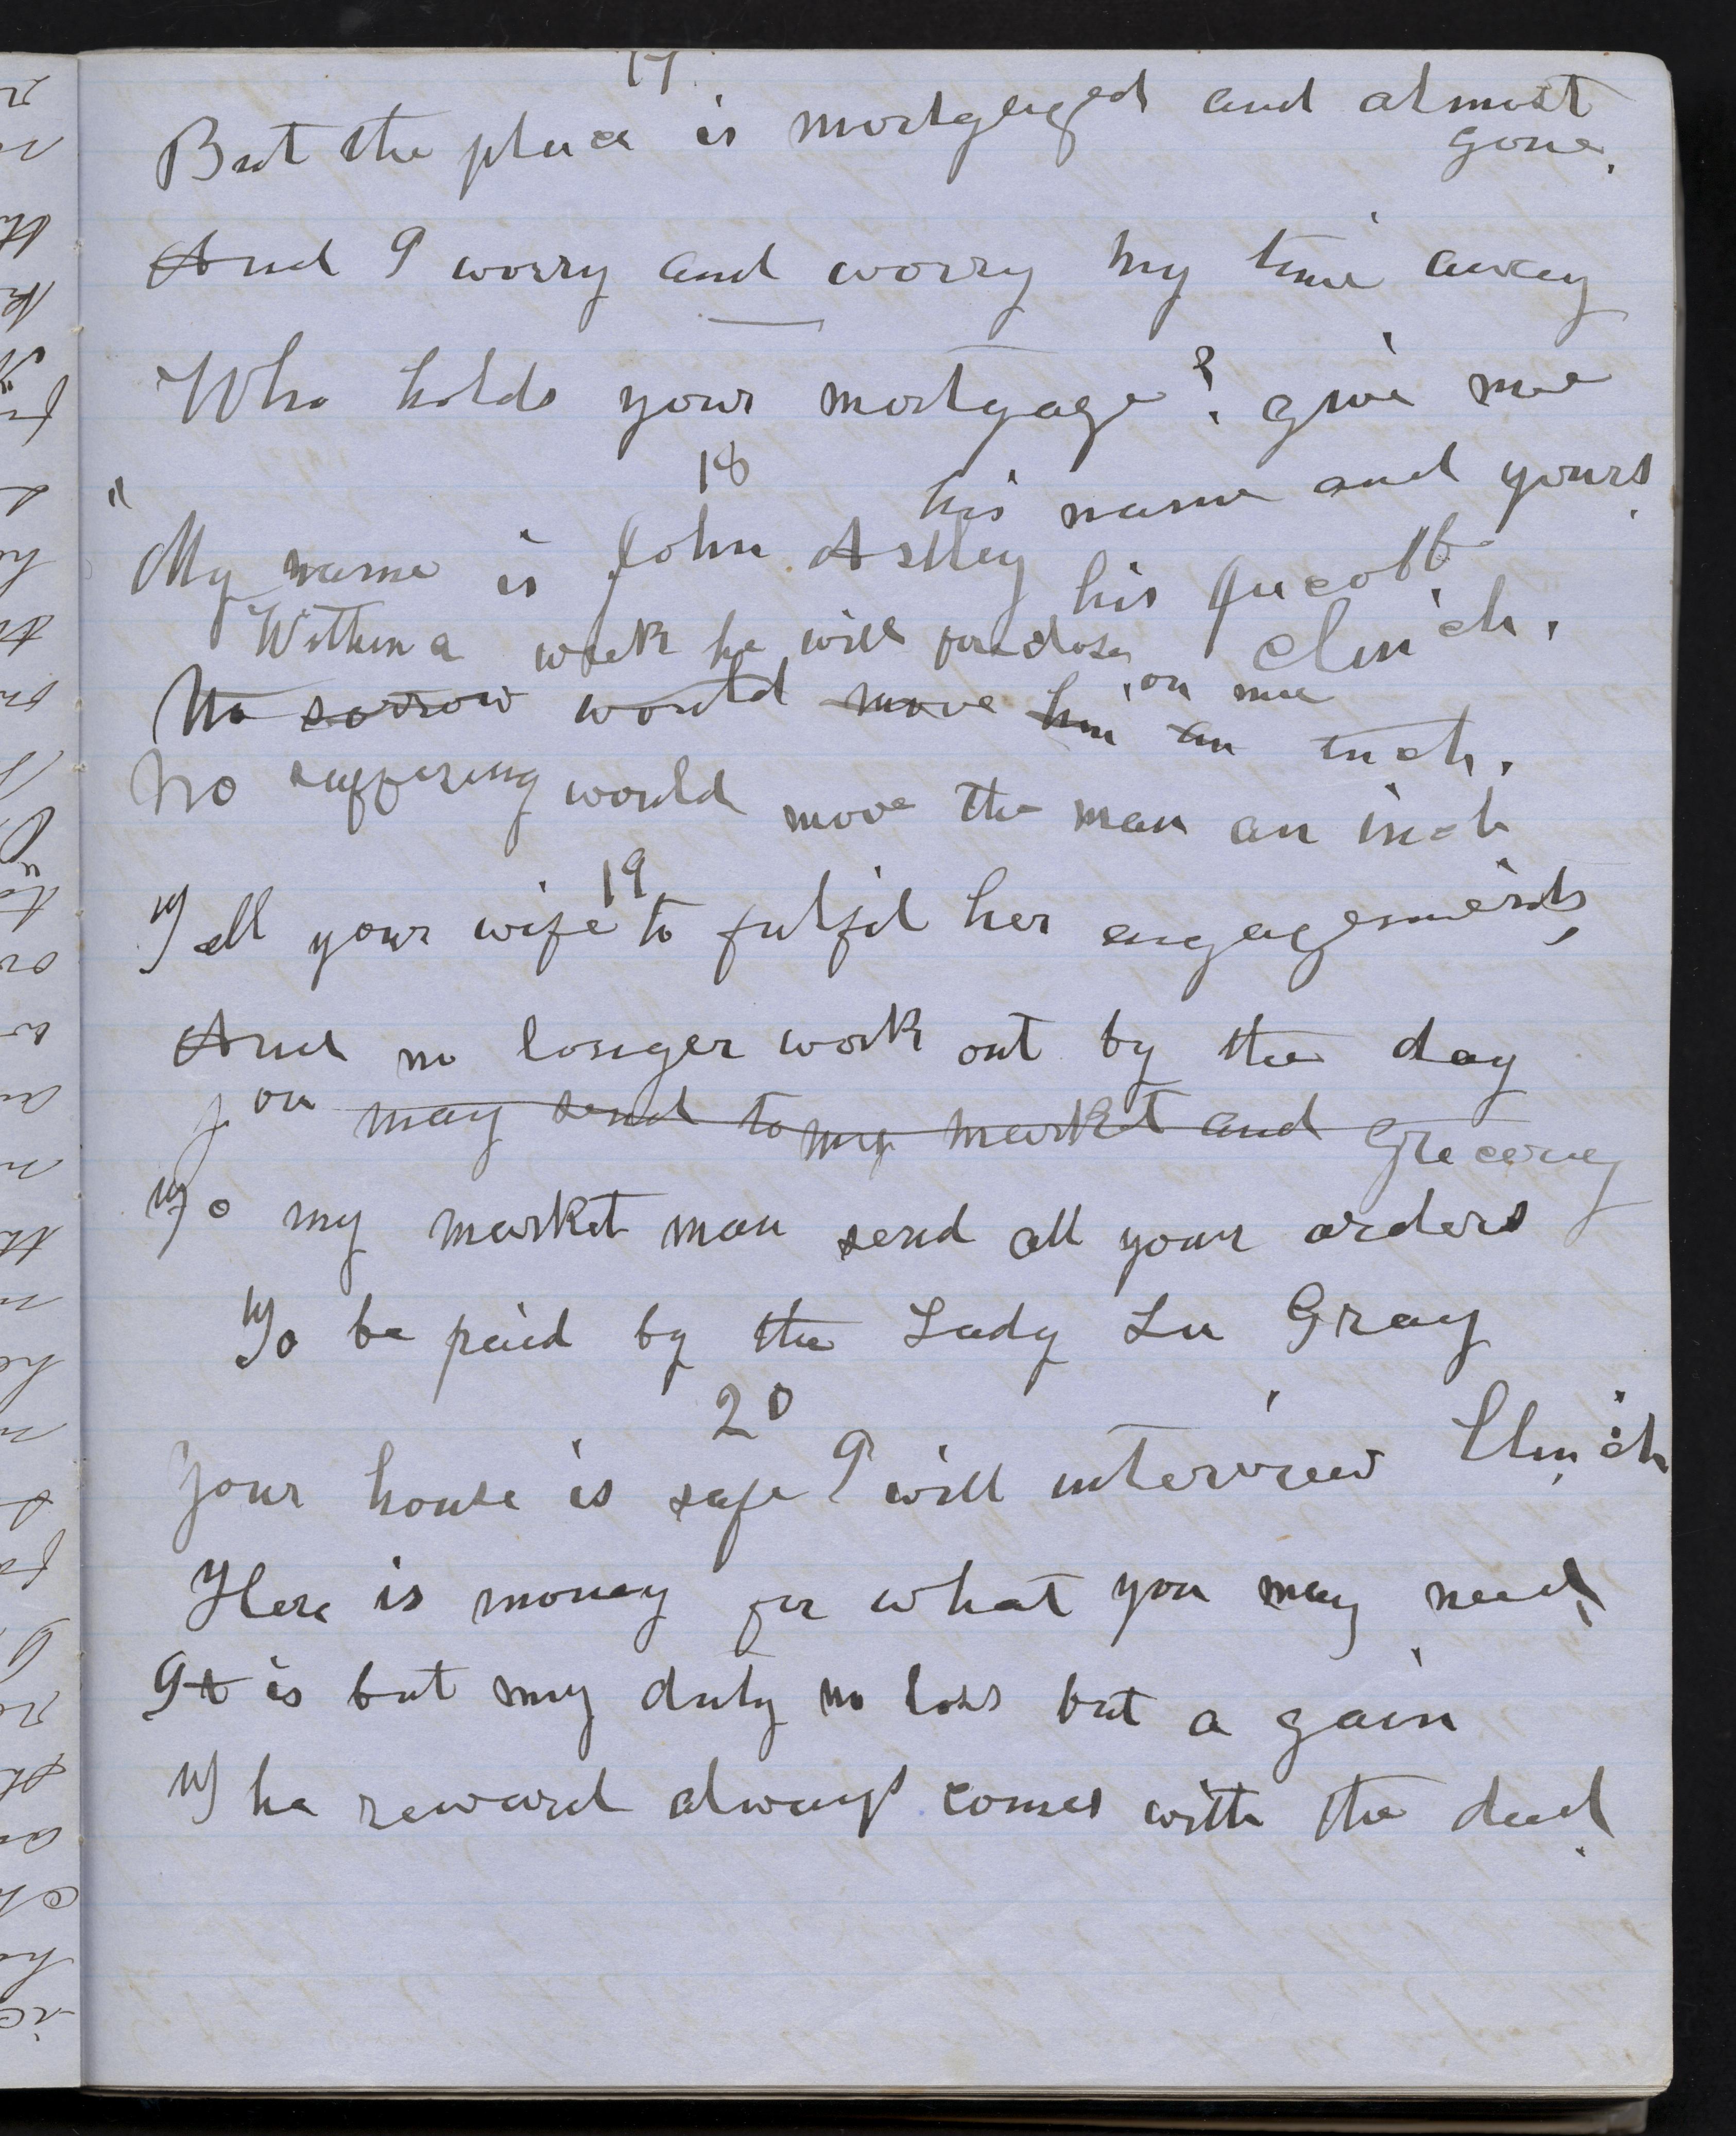 17
But the place is mortgaged and almost
gone.
And I worry and worry my time away
Who holds your mortgage? give me
his name and yours.
18
"My name is John Astley his Jacob
Clinch.
Within a week he will foreclose on me
No sorrow would move him an inch.
No suffering would move the man an inch
19
Tell your wife to fulfil her engagements,
And no longer work out by the day
You may send to my market and Grocery
To my market man send all your orders
To be paid by the Lady Lu Gray
20
Your house is safe I will interview Clinch
Here is money for what you may need,
It is but my duty no loss but a gain
The reward always comes with the deed.